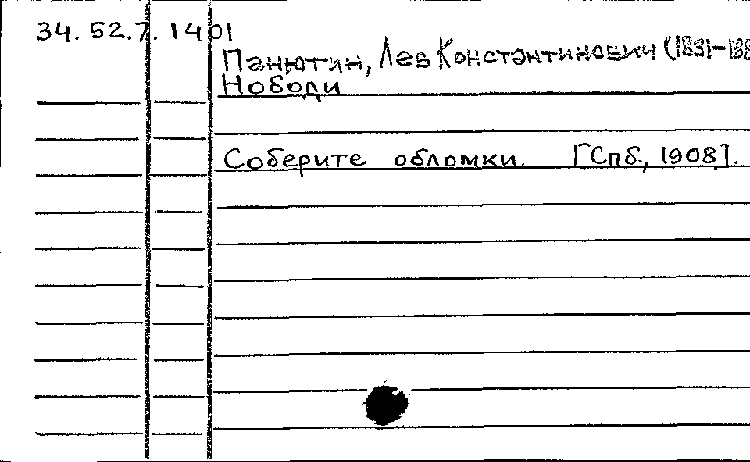 34.52.7.1401
Панютин, Лев Константинович (1831-188
Нободи
Соберите обломки. [Спб., 1908].